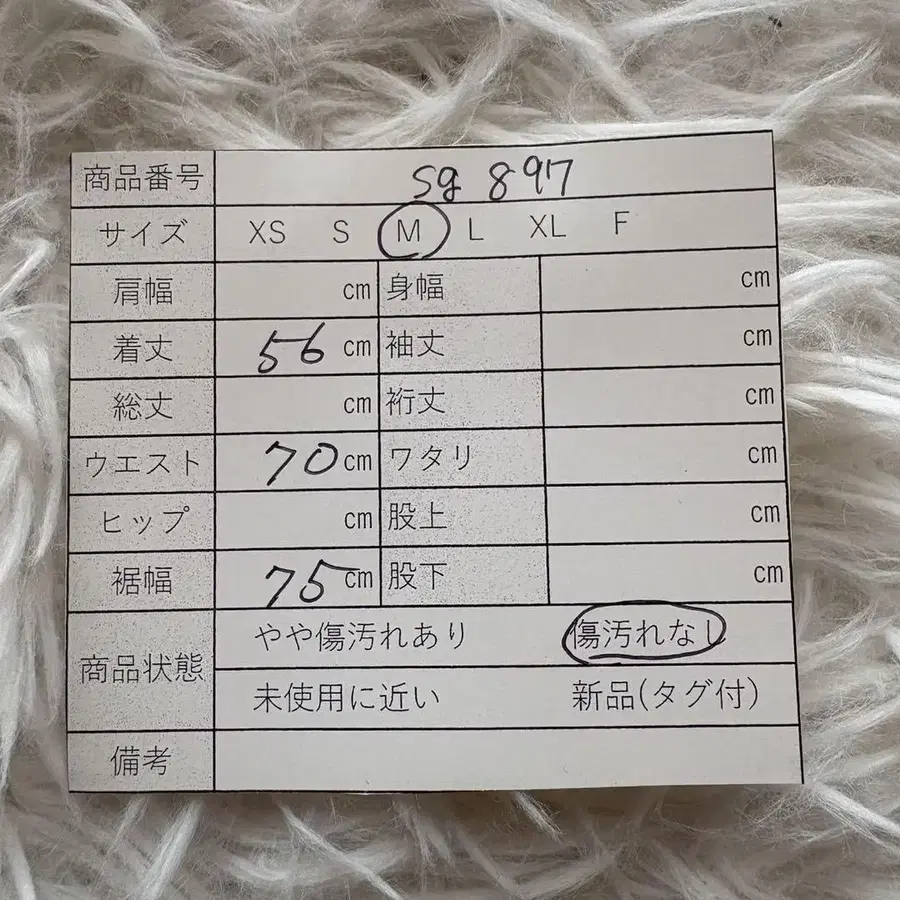 商品番号 sg 897
サイズ XS S M L XL F
肩幅 cm 身幅 cm
着丈 56 cm 袖丈 cm
総丈 cm 裄丈 cm
ウエスト 70 cm ワタリ cm
ヒップ cm 股上 cm
裾幅 75 cm 股下 cm
商品状態 やや傷汚れあり 傷汚れなし
未使用に近い 新品(タグ付)
備考